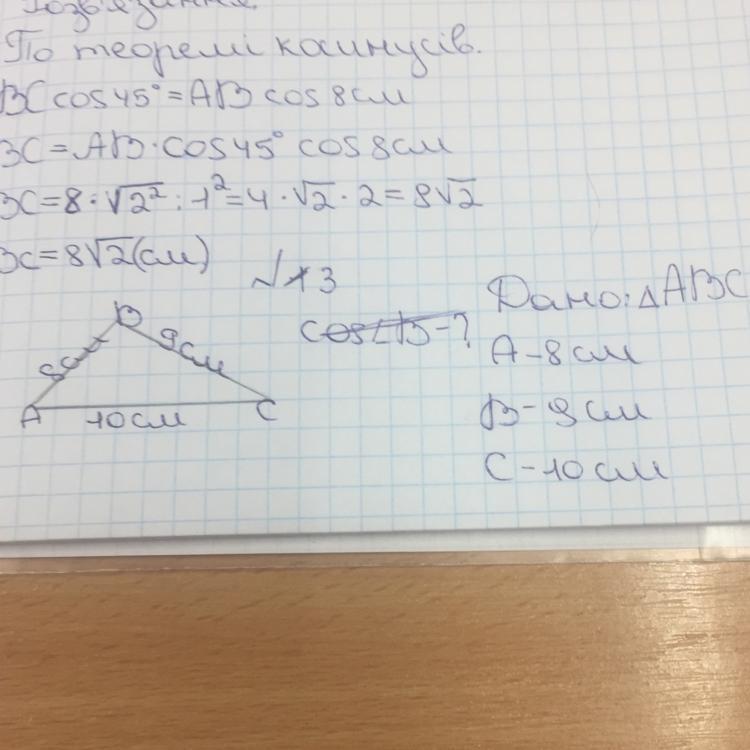 Розв'язання.
По теоремі косинусів.
BC cos45° = AB cos 8см
BC = AB · cos45° cos 8см
BC = 8 · √2² : 1² = 4 · √2 · 2 = 8√2
BC = 8√2 (см)
№13
B
8см
9см
A
10см
C
cos∠B - ?
Дано: △ABC
A - 8 см
B - 9 см
C - 10 см